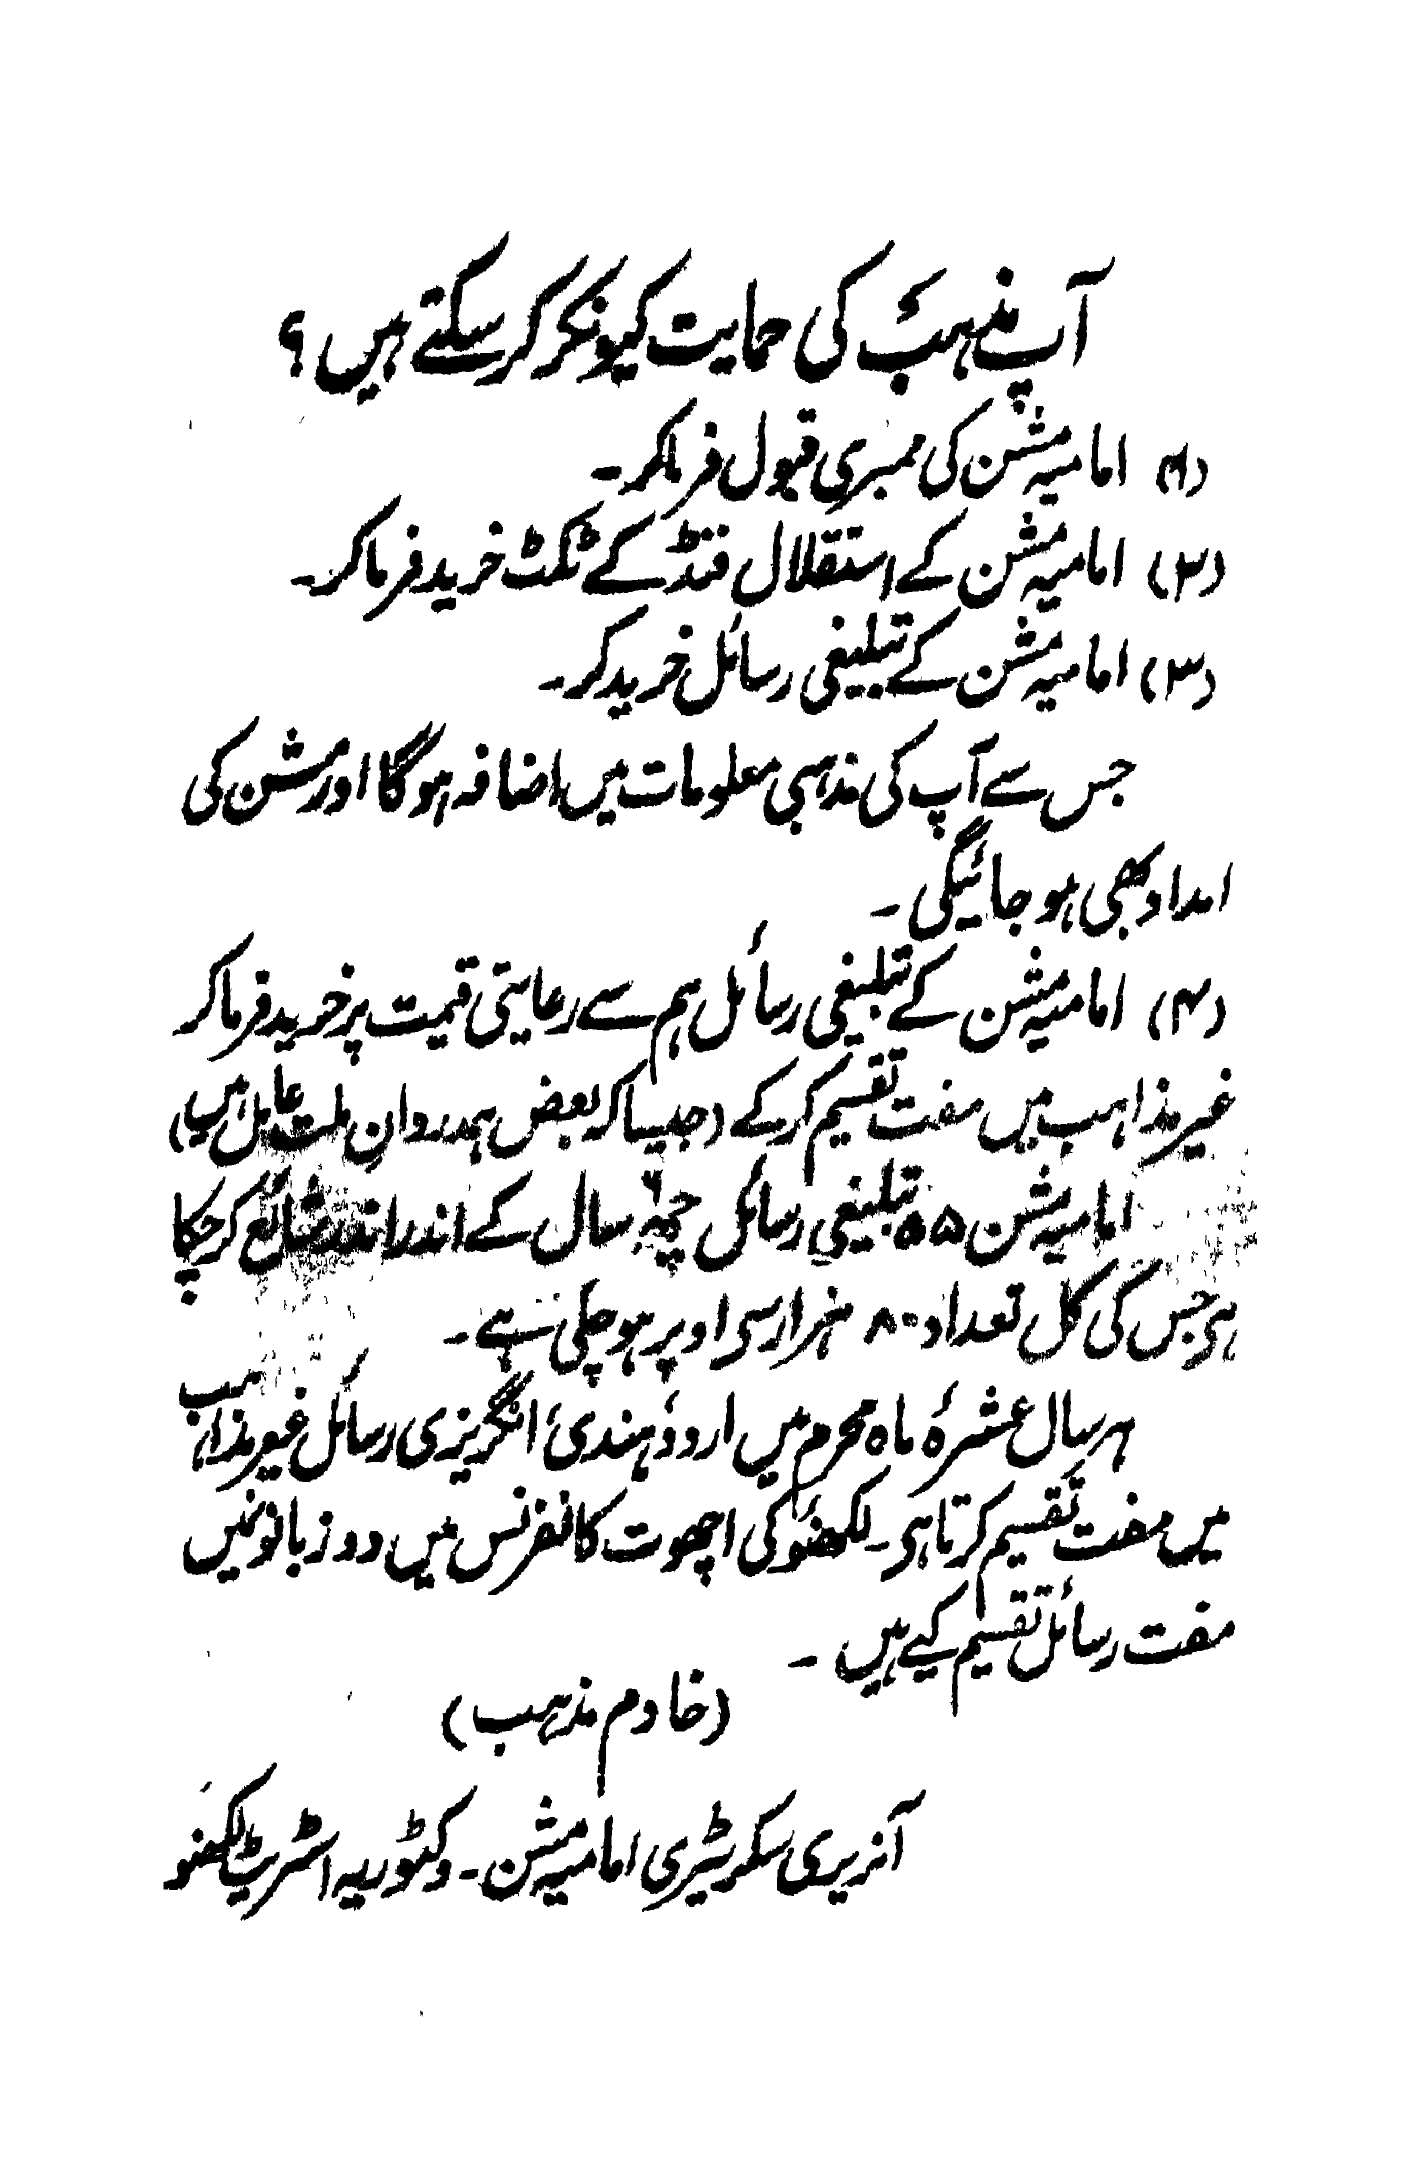 آپ مذہب کی حمایت کیونکر کر سکتے ہیں ؟
(۱) امامیہ مشن کی ممبری قبول فرماکر۔
(۲) امامیہ مشن کے استقلال فنڈ کے ٹکٹ خرید فرماکر۔
(۳) امامیہ مشن کے تبلیغی رسائل خرید کر۔
جس سے آپ کی مذہبی معلومات میں اضافہ ہوگا اور مشن کی
امداد بھی ہو جائیگی۔
(۴) امامیہ مشن کے تبلیغی رسائل ہم سے رعایتی قیمت پر خرید فرماکر
غیر مذاہب میں مفت تقسیم کر کے (جیسا کہ بعض ہمدردانِ ملت عامل ہیں)
امامیہ مشن ۵۵ تبلیغی رسائل چھ ۶ سال کے اندر اندر شائع کرچکا
ہی جس کی کل تعداد ۸۰ ہزار سی اوپر ہو چلی ہے۔
ہر سال عشرۂ ماہ محرم میں اردو، ہندی، انگریزی رسائل غیر مذاہب
میں مفت تقسیم کرتا ہی۔ لکھنؤ کی اچھوت کانفرنس میں دو زبانونمیں
مفت رسائل تقسیم کیے ہیں ۔
(خادم مذہب)
آنریری سکریٹری امامیہ مشن۔ وکٹوریہ اسٹریٹ لکھنؤ